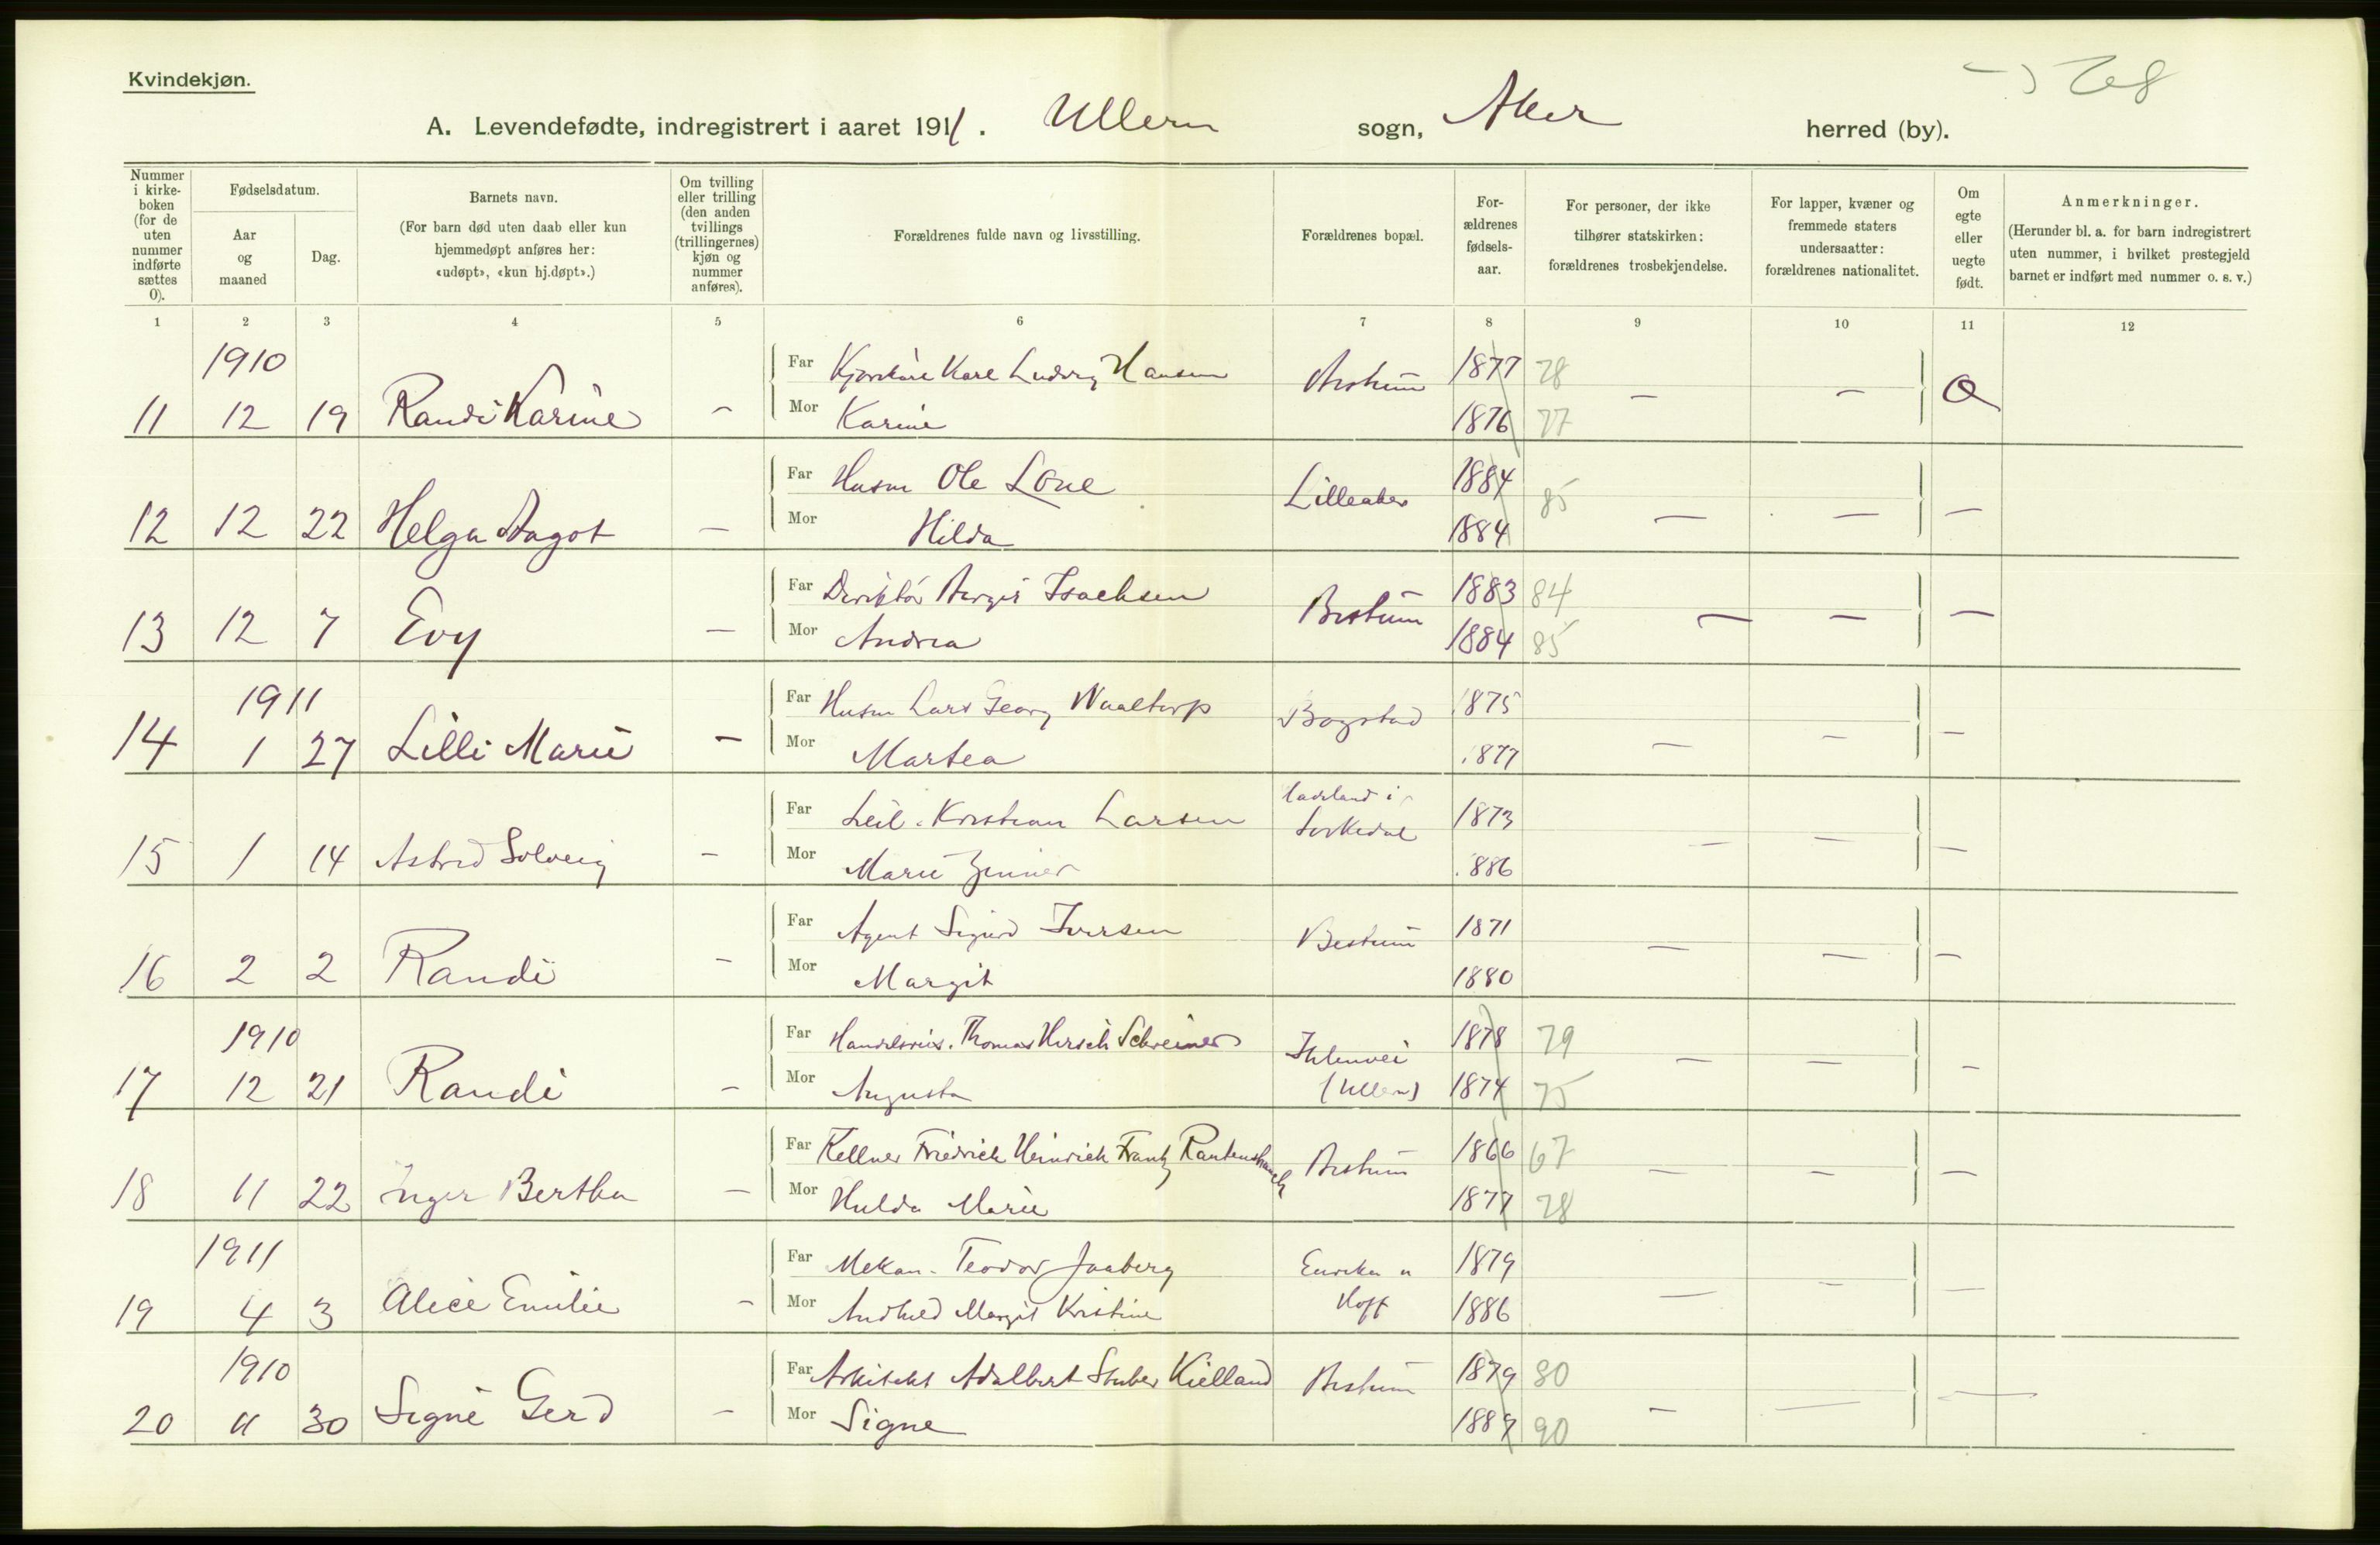 Kvindekjøn.
68
A. Levendefødte, indregistrert i aaret 1911. Ullern sogn, Aker herred (by).
Nummer i kirke-boken (for de uten nummer indførte sættes 0).
Fødselsdatum.
Aar og maaned
Dag.
Barnets navn.
(For barn død uten daab eller kun hjemmedøpt anføres her: «udøpt», «kun hj.døpt».)
Om tvilling eller trilling (den anden tvillings (trillingernes) kjøn og nummer anføres).
Forældrenes fulde navn og livsstilling.
Forældrenes bopæl.
For-ældrenes fødsels-aar.
For personer, der ikke tilhører statskirken: forældrenes trosbekjendelse.
For lapper, kvæner og fremmede staters undersaatter: forældrenes nationalitet.
Om egte eller uegte født.
Anmerkninger.
(Herunder bl. a. for barn indregistrert uten nummer, i hvilket prestegjeld barnet er indført med nummer o. s. v.)
1 2 3 4 5 6 7 8 9 10 11 12
1910 Far Karl Ludvig Hansen Bestum 1877 78
11 12 19 Randi Karine - Mor Karine 1876 77 - -
Far Husm Ole Lone Lilleaker 1884 85
12 12 22 Helga Aagot - Mor Hilda 1884 - - -
Far Birger Isachsen Bestum 1883 84
13 12 7 Evy - Mor Andrea 1884 85 - - -
1911 Far Husm Lars Georg Waaltorp Bogstad 1875
14 1 27 Lilli Marie - Mor Martea 1877 - - -
Far Leil. Kristian Larsen i Sørkedal 1873
15 1 14 Astrid Solveig - Mor Marie 1886 - - -
Far Agent Sigurd Iversen Bestum 1871
16 2 2 Randi - Mor Margit 1880 - - -
1910 Far Thomas Hirsch Schreiner 1878 79
17 12 21 Randi - Mor Augusta (Ullern) 1874 75 - - -
Far Kellner Friedrich Heinrich Frantz Rautenstrauch Bestum 1866 67
18 11 22 Inger Bertha - Mor Hulda Marie 1877 78 - - -
1911 Far Mekan. Teodor Jaaberg 1879
19 4 3 Alice Emilie - Mor Margit Kristine Hoff 1886 - - -
1910 Far Arkitekt Adalbert Stuber Kielland Bestum 1879 80
20 11 30 Signe Gerd - Mor Signe 1889 90 - - -